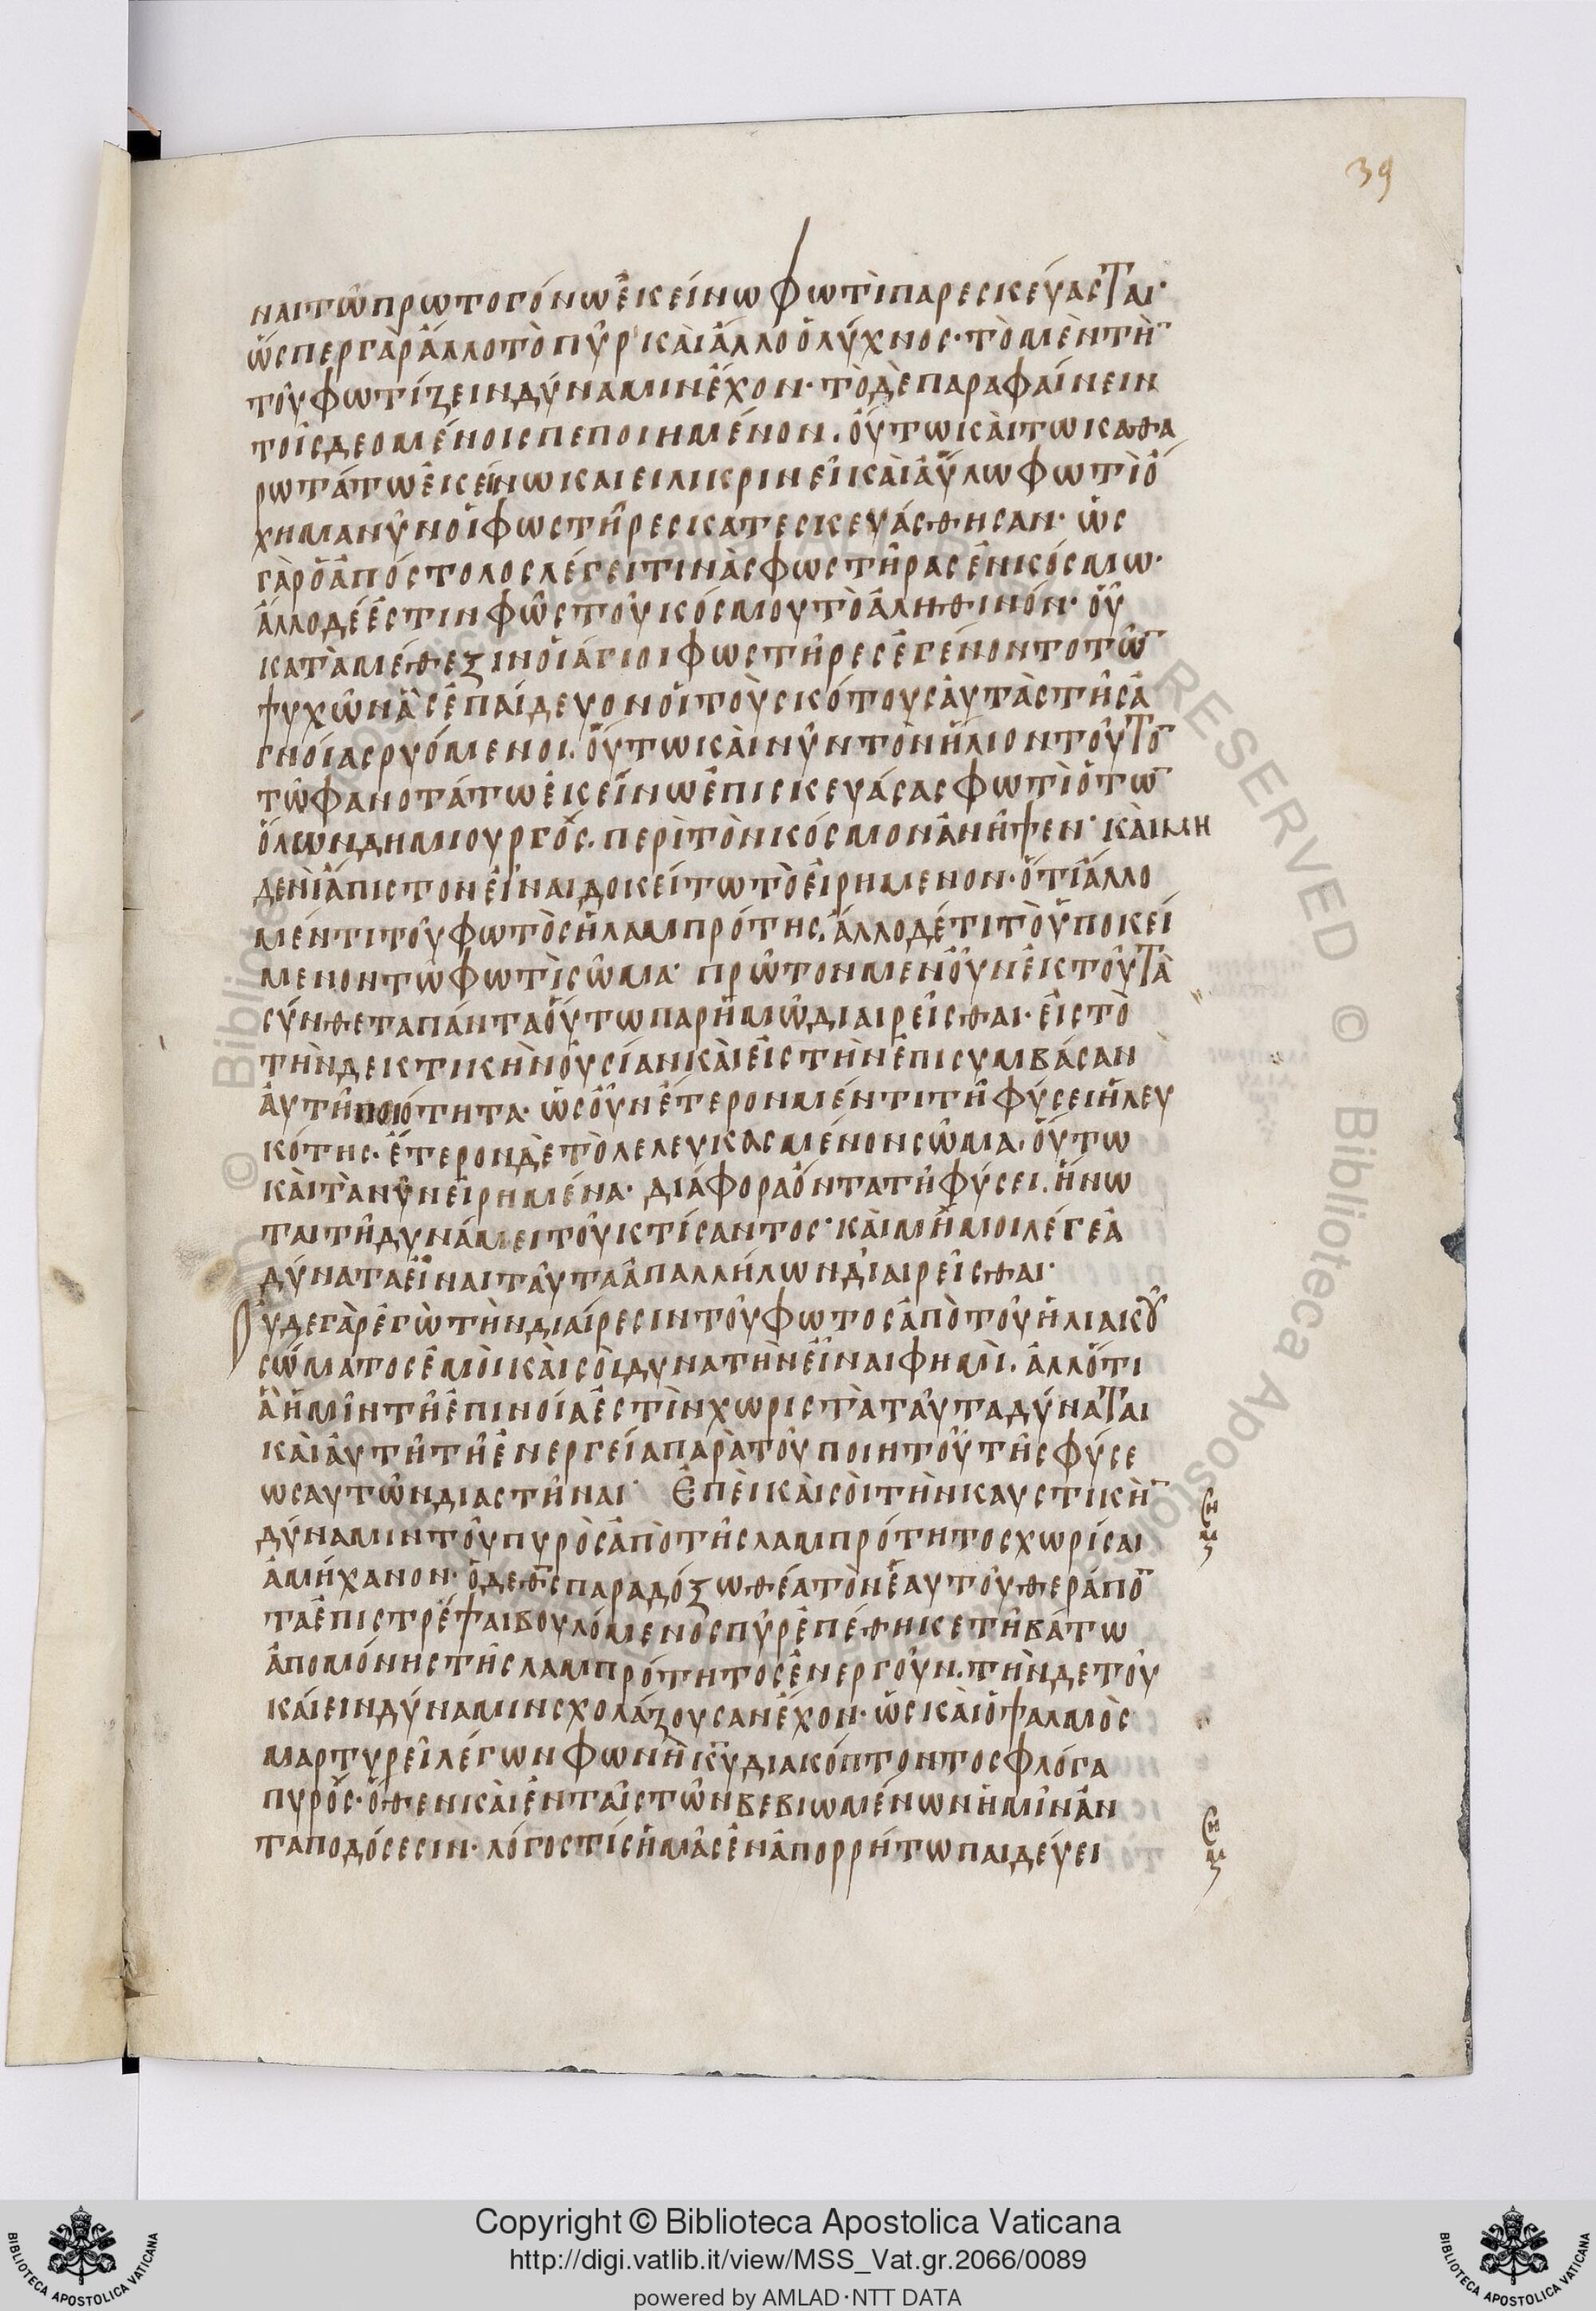 39
ναι τῶ πρωτογόνω ἐκείνω φωτὶ παρεσκεύασται·
ὥσπερ γὰρ ἄλλο τὸ πῦρ καὶ ἄλλο ὁ λύχνος· τὸ μὲν τὴ̅
τοῦ φωτίζειν δύναμιν ἔχον· τὸ δὲ παραφαίνειν
τοῖς δεομένοις πεποιημένον. οὕτω καὶ τω καθα
ρωτάτω ἐκείνω και ειλικρινεῖ καὶ ἀΰλω φωτὶ ὄ
χημα νῦν οἱ φωστῆρες κατεσκευάσθησαν· ὡς
γὰρ ὁ ἀπόστολος λέγει τινὰς φωστῆρας ἐν κόσμω·
ἄλλο δέ ἐστιν φῶς τοῦ κόσμου τὸ ἀληθινόν· οὗ
κατὰ μέθεξιν οἱ άγιοι φωστῆρες ἐγένοντο τῶ̅
ψυχῶν ἃς ἐπαίδευον οἱ τοὺ σκότους ἀυτὰς τῆς ἀ
γνοίας ρυόμενοι. οὕτω καὶ νῦν τὸν ἥλιον τοῦτο̅
τῶ φανοτάτω ἐκείνω ἐπισκευάσας φωτὶ ὁ τω̅
ὅλων δημιουργὸς. περὶ τὸν κόσμον ἀνῆψεν· καὶ μη
δενὶ ἄπιστον εἶναι δοκείτω τὸ ἐιρημενον· ὅτι ἄλλο
μέν τι τοῦ φωτὸς ἡ λαμπρότης. ἄλλο δέ τι τὸ ὑποκεί
μενον τῶ φωτὶ σῶμα· πρῶτον μεν οὖν ἐκ τοῦ τὰ
σύνθετα πάντα οὕτω παρ ἡμῶ διαιρεῖσθαι· εἰς τὸ
τὴν δεκτικὴν οὐσίαν καὶ εἰς τὴν ἐπισυμβάσαν
ἀυτῆ ποιότητα· ὡς οὖν ἕτερον μέν τι τῆ φύσει ἡ λευ
κότης. ἕτερον δὲ τὸ λελευκασμένον σῶμα. οὕτω
καὶ τὰ νῦν εἰρημένα· διάφορα ὄντα τῆ φύσει. ἥνω
ται τῆ δυνάμει τοῦ κτίσαντος· καὶ μή μοι λέγε ἀ
δύνατα εἶναι ταῦτα ἀπ αλλήλων διαιρεῖσθαι·
Ουδε γὰρ ἐγὼ τὴν διαίρεσιν τοῦ φωτος ἀπὸ τοῦ ἡλιακοῦ
σώματος ἐμοὶ καὶ σοὶ δυνατὴν εἶναι φημὶ. ἀλλ ὅτι
ἃ ἡμῖν τῆ ἐπινοία ἐστὶν χωριστὰ ταῦτα δύναται
καὶ ἀυτῆ τῆ ἐνεργεία παρὰ τοῦ ποιητοῦ τῆς φύσε
ως αυτῶν διαστῆναι· Ἐπεὶ καὶ σοὶ τὴν καυστικὴ̅
δύναμιν τοῦ πυρὸς ἀπὸ τῆς λαμπρότητος χωρίσαι
ἀμήχανον· ὁ δε θ̅ς̅ παραδόξω θέα τὸν ἑαυτοῦ θεράπο̅
τα ἐπιστρέψαι βουλόμενος πῦρ ἐπέθηκε τῆ βάτω
ἀπο μόνης τῆς λαμπρότητος ἐνεργοῦν. τὴν δε τοῦ
κάιειν δύναμιν σχολάζουσαν ἔχον· ὡς καὶ ὁ ψαλμὸς
μαρτυρεῖ λέγων φωνὴ κ̅υ̅ διακόπτοντος φλόγα
πυρὸς· ὅθεν καὶ ἐν ταῖς τῶν βεβιωμένων ἡμῖν ἀν
ταποδόσεσιν· λόγος τίς ἡμᾶς ἐν ἀπορρήτω παιδεύει
Copyright © Biblioteca Apostolica Vaticana
http://digi.vatlib.it/view/MSS_Vat.gr.2066/0089
powered by AMLAD·NTT DATA
BIBLIOTECA APOSTOLICA VATICANA
BIBLIOTECA APOSTOLICA VATICANA